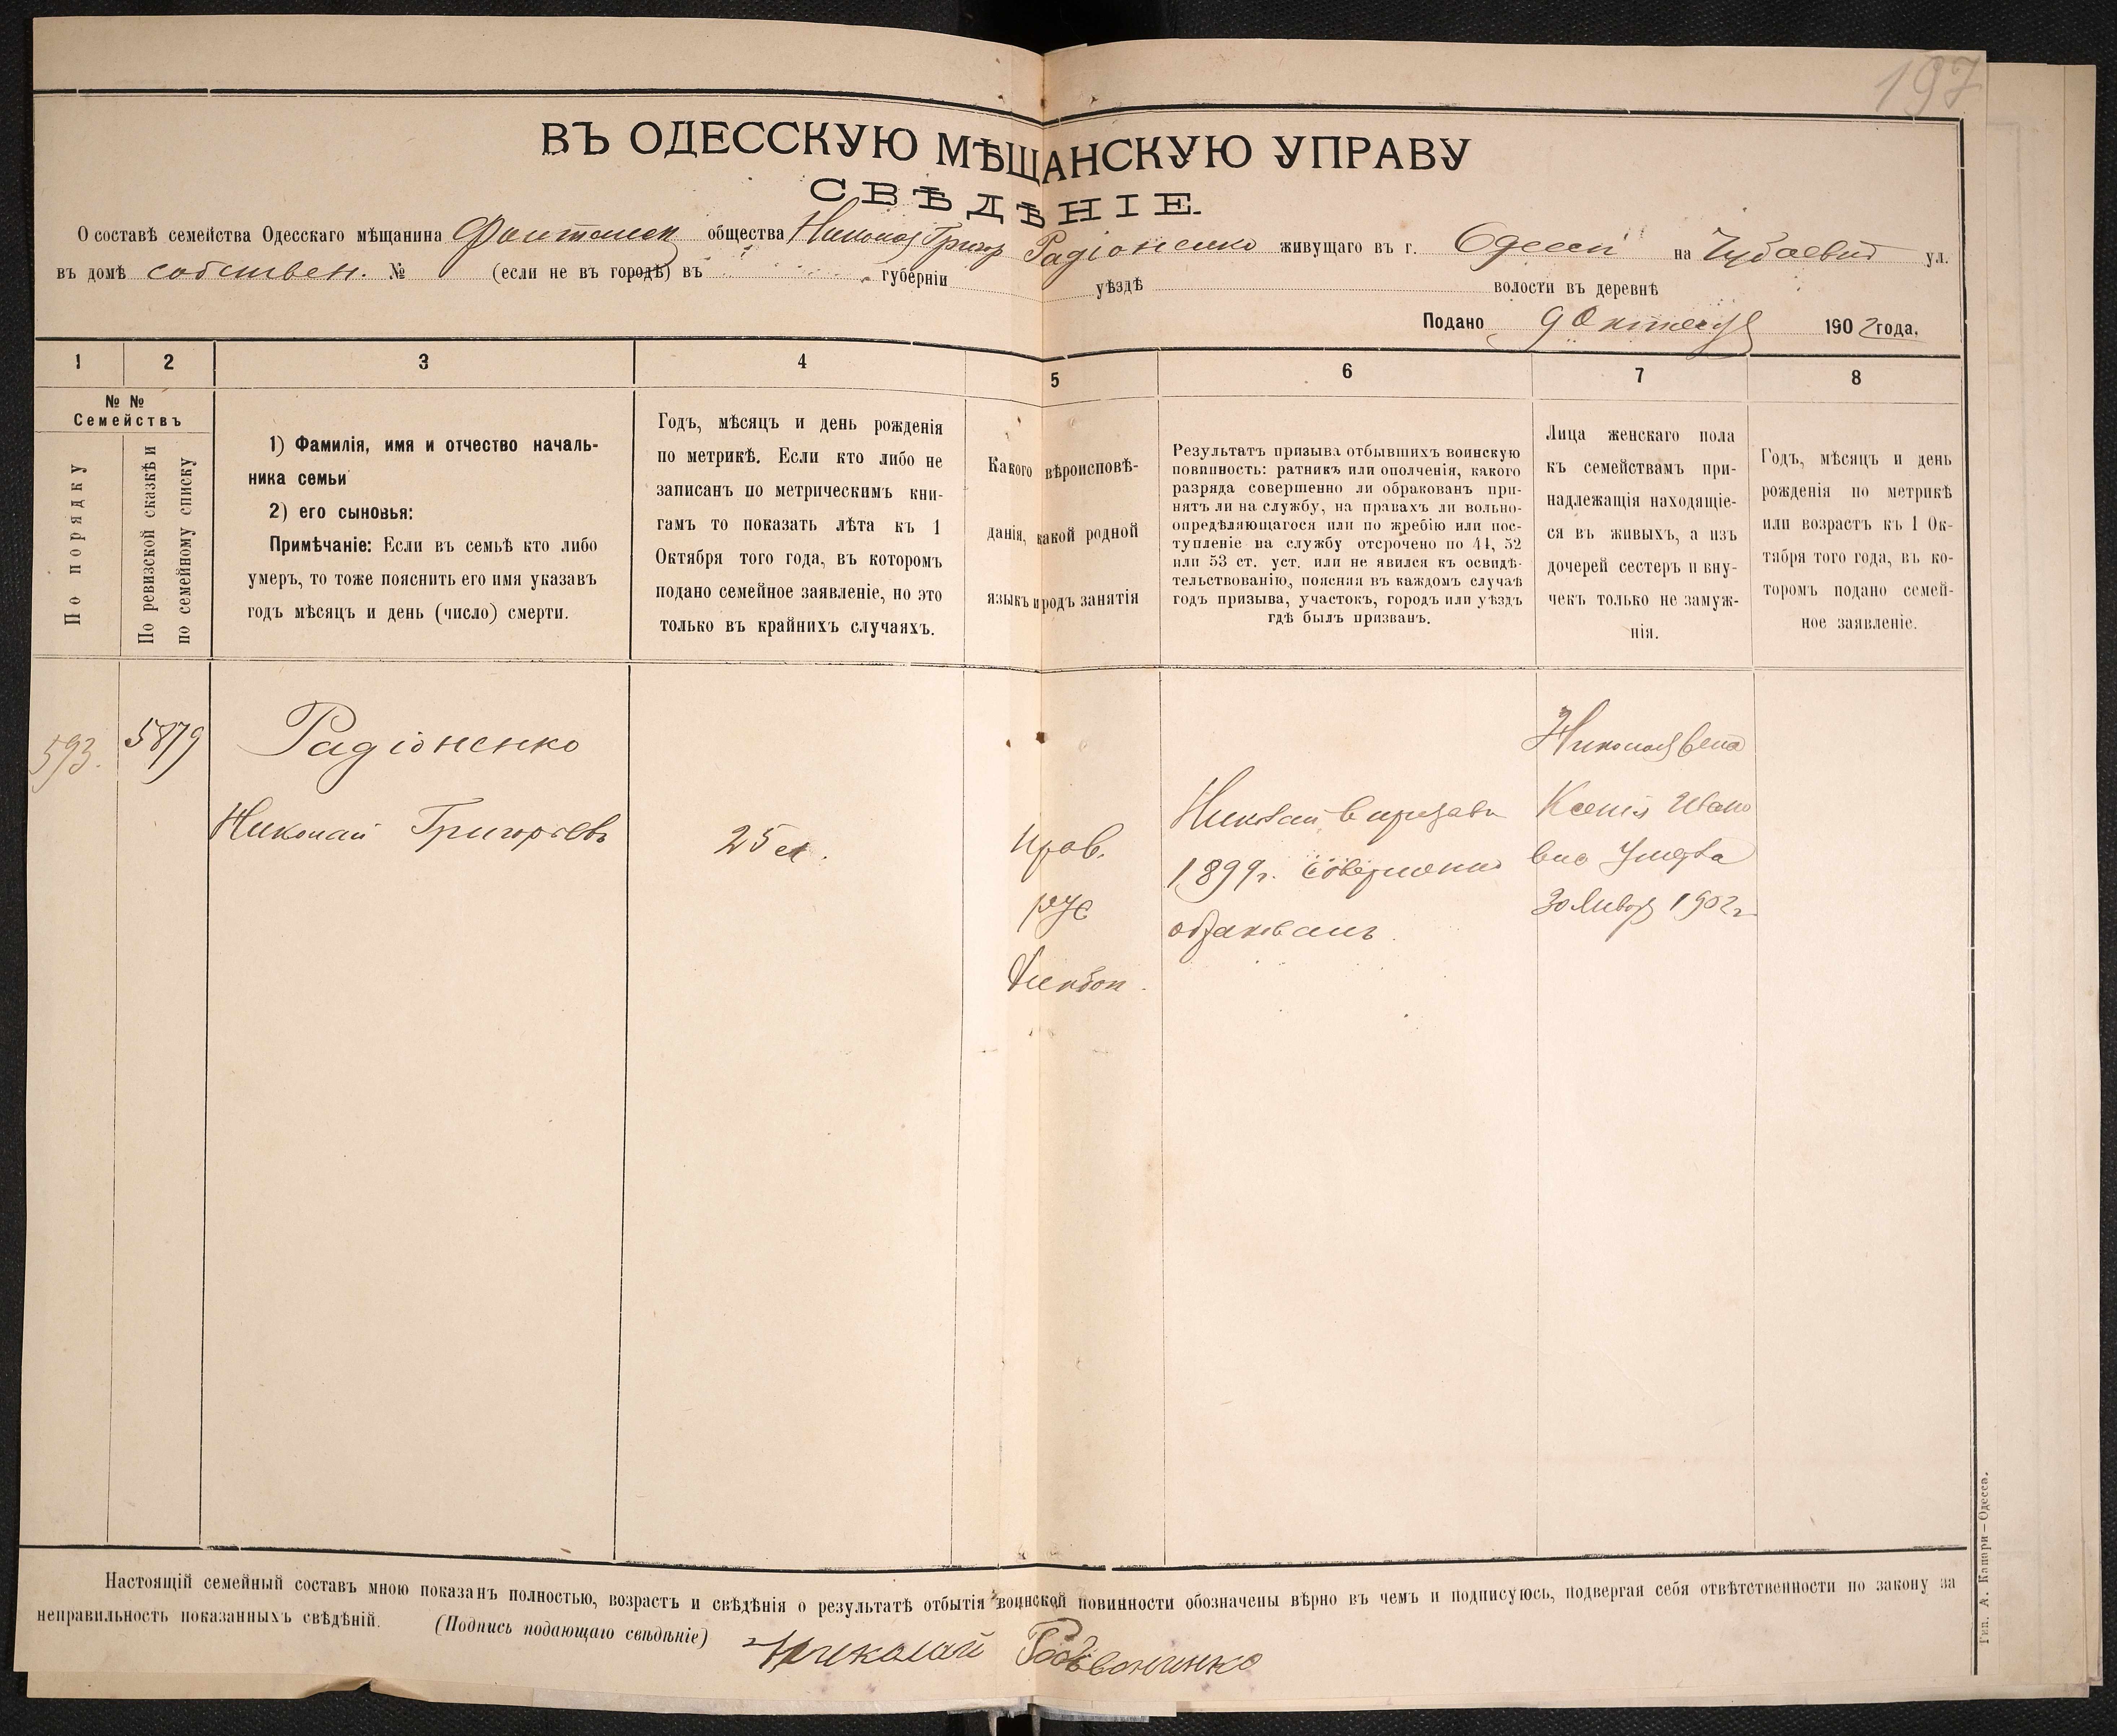 197
ВЪ ОДЕССКУЮ МѢЩАНСКУЮ УПРАВУ
СВѢДѢНІЕ.
О составѣ семейства Одесскаго мѣщанина Фонтанск общества Николая Григор Радіоненко живущаго въ г. Одессѣ на ул.
въ домѣ собствен. № (если не въ городѣ) въ губерніи уѣздѣ волости въ деревнѣ
Подано 9 Октября 1902 года.
1 2 3 4 5 6 7 8
№ №
Семействъ
По порядку
По ревизской сказкѣ и
по семейному списку
1) Фамилія, имя и отчество началь-
ника семьи
2) его сыновья:
Примѣчаніе: Если въ семьѣ кто либо
умеръ, то тоже пояснить его имя указавъ
годъ мѣсяцъ и день (число) смерти.
Годъ, мѣсяцъ и день рожденія
по метрикѣ. Если кто либо не
записанъ по метрическимъ кни-
гамъ то показать лѣта къ 1
Октября того года, въ которомъ
подано семейное заявленіе, но это
только въ крайнихъ случаяхъ.
Какого вѣроисповѣ-
данія, какой родной
языкъ и родъ занятія
Результатъ призыва отбывшихъ воинскую
повинность: ратникъ или ополченія, какого
разряда совершенно ли обракованъ при-
нятъ ли на службу, на правахъ ли вольно-
опредѣляющагося или по жребію или пос-
тупленіе на службу отсрочено по 44, 52
или 53 ст. уст. или не явился къ освидѣ-
тельствованію, поясняя въ каждомъ случаѣ
годъ призыва, участокъ, городъ или уѣздъ
гдѣ былъ призванъ.
Лица женскаго пола
къ семействамъ при-
надлежащія находящіе-
ся въ живыхъ, а изъ
дочерей сестеръ и вну-
чекъ только не замуж-
нія.
Годъ, мѣсяцъ и день
рожденія по метрикѣ
или возрастъ къ 1 Ок-
тября того года, въ ко-
торомъ подано семей-
ное заявленіе.
593.
5879
Радіоненко
Николай Григорьевъ
25 л.
прав.
рус
Николай въ призывъ
1899г. совершенно
обракованъ.
Николая жена
Ксенія Ивано
вна умерла
30 Январ 1902г
Настоящій семейный составъ мною показанъ полностью, возрастъ и свѣдѣнія о результатѣ отбытія воинской повинности обозначены вѣрно въ чемъ и подписуюсь, подвергая себя отвѣтственности по закону за
неправильность показанныхъ свѣдѣній. (Подпись подающаго свѣдѣніе) Николай
Тип. А. Капари—Одесса.